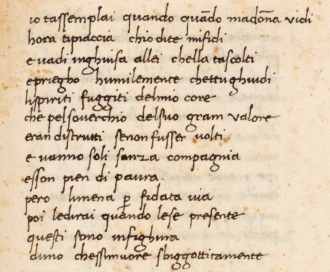 io tassemplai quando quādo madōna vidi
hora tipiaccia chio dite mifidi
e vadi inghuisa allei chella tascolti
epriegho humilemente chettu ghuidi
lispiriti fuggiti delmio core
che pelsoverchio delsuo gram valore
eran distrutti senonfusser volti
e vanno soli sanza compagnia
esson pien di paura.
pero limena p̄ fidata via
poi ledirai quando lese presente
questi sono infighura
duno chessimuore sbigottitamente